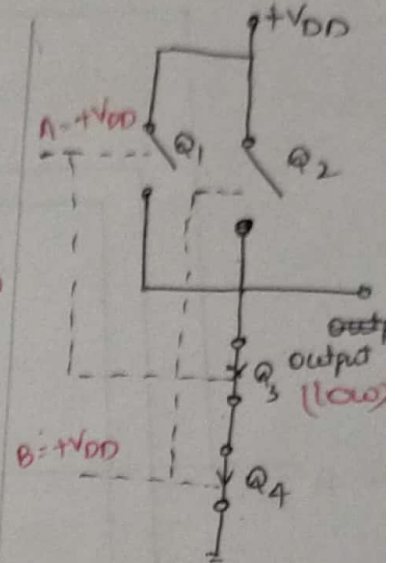 +VDD
A=+VDD
Q1
Q2
Output
Q3
(low)
B=+VDD
Q4